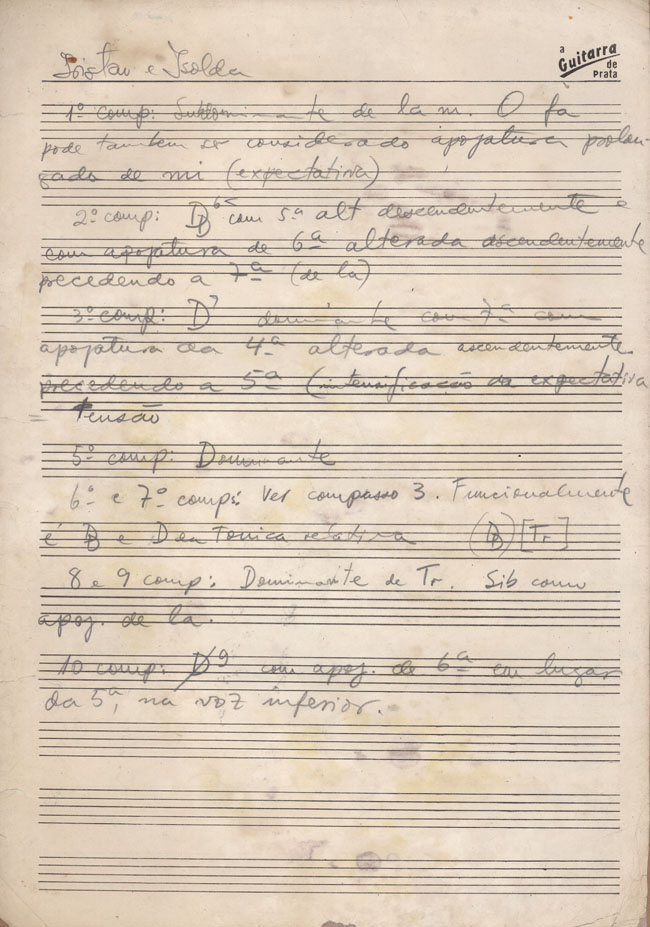 a
Guitarra
de
Prata
Tristão e Isolda
1º comp: Subdominante de la m. O fa
pode tambem ser considerado apojatura prolon-
gada de mi (expectativa)
2º comp: DD 6< com 5ª alt descendentemente e
com apojatura de 6ª alterada ascendentemente
precedendo a 7ª (de la)
3º comp: D7 dominante com 7ª com
apojatura da 4ª alterada ascendentemente
precedendo a 5ª (intensificação da expectativa
= tensão
5º comp: Dominante
6º e 7º comps: Ver compasso 3. Funcionalmente
é DD e D da Tonica relativa (DD) [Tr]
8 e 9 comp: Dominante de Tr. Sib como
apoj. de la.
10 comp: D9 com apoj. de 6ª em lugar
da 5ª, na voz inferior.